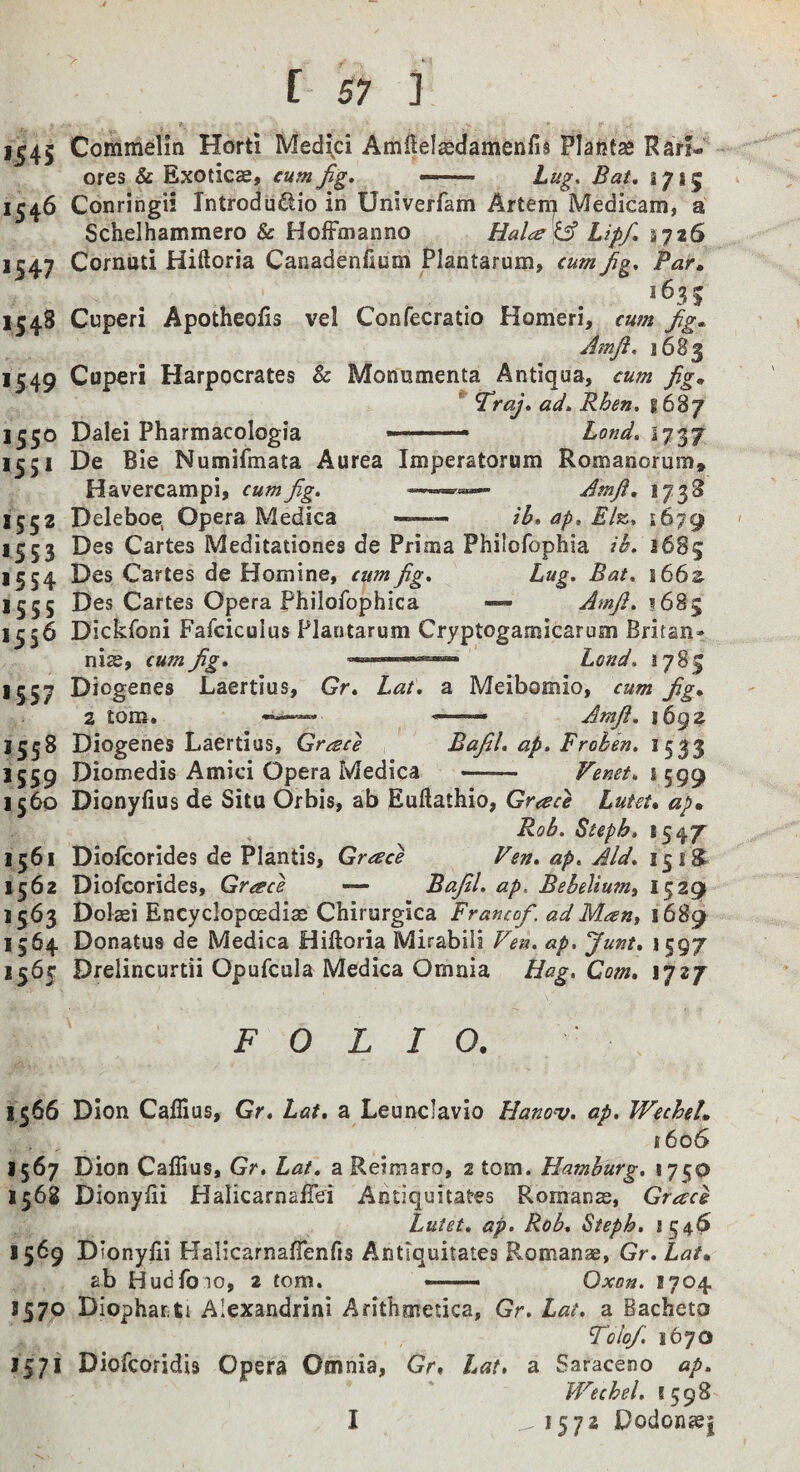 [ 57 ]
1545 Commelin Horti Medici Amſtelædamenſis Plantæ Rari-
ores & Exoticæ, cum fig. —— Lug. Bat. 1715
1546 Conringii Introductio in Univerſam Artem Medicam, a
Schelhammero & Hoffmanno Halæ & Lipſ. 1726
1547 Cornuti Hiſtoria Canadenſium Plantarum, cum fig. Par.
1635
1548 Cuperi Apotheoſis vel Conſecratio Homeri, cum fig.
Amſt. 1683
1549 Cuperi Harpocrates & Monumenta Antiqua, cum fig.
Traj. ad. Rhen. 1687
1550 Dalei Pharmacologia —— Lond. 1737
1551 De Bie Numiſmata Aurea Imperatorum Romanorum,
Havercampi, cum fig. —— Amſt. 1738
1552 Deleboe Opera Medica —— ib. ap. Elz. 1679
1553 Des Cartes Meditationes de Prima Philoſophia ib. 1685
1554 Des Cartes de Homine, cum fig. Lug. Bat. 1662
1555 Des Cartes Opera Philoſophica — Amſt. 1685
1556 Dickſoni Faſciculus Plantarum Cryptogamicarum Britan-
niæ, cum fig. —— Lond. 1785
1557 Diogenes Laertius, Gr. Lat. a Meibomio, cum fig.
2 tom. —— —— Amſt. 1692
1558 Diogenes Laertius, Græcè Baſil. ap. Froben. 1533
1559 Diomedis Amici Opera Medica —— Venet. 1599
1560 Dionyſius de Situ Orbis, ab Euſtathio, Græcè Lutet. ap.
Rob. Steph. 1547
1561 Dioſcorides de Plantis, Græcè Ven. ap. Ald. 1518
1562 Dioſcorides, Græcè — Baſil. ap. Bebelium, 1529
1563 Dolæi Encyclopœdiæ Chirurgica Francof. ad Mæn, 1689
1564 Donatus de Medica Hiſtoria Mirabili Ven. ap. Junt. 1597
1565 Drelincurtii Opuſcula Medica Omnia Hag. Com. 1727
FOLIO.
1566 Dion Caſſius, Gr. Lat. a Leunclavio Hanov. ap. Wechel.
1606
1567 Dion Caſſius, Gr. Lat. a Reimaro, 2 tom. Hamburg. 1750
1568 Dionyſii Halicarnaſſei Antiquitates Romanæ, Græcè
Lutet. ap. Rob. Steph. 1546
1569 Dionyſii Halicarnaſſenſis Antiquitates Romanæ, Gr. Lat.
ab Hudſono, 2 tom. —— Oxon. 1704
1570 Diophanti Alexandrini Arithmetica, Gr. Lat. a Bacheto
Toloſ. 1670
1571 Dioſcoridis Opera Omnia, Gr. Lat. a Saraceno ap.
Wechel. 1598
I 1572 Dodonæi